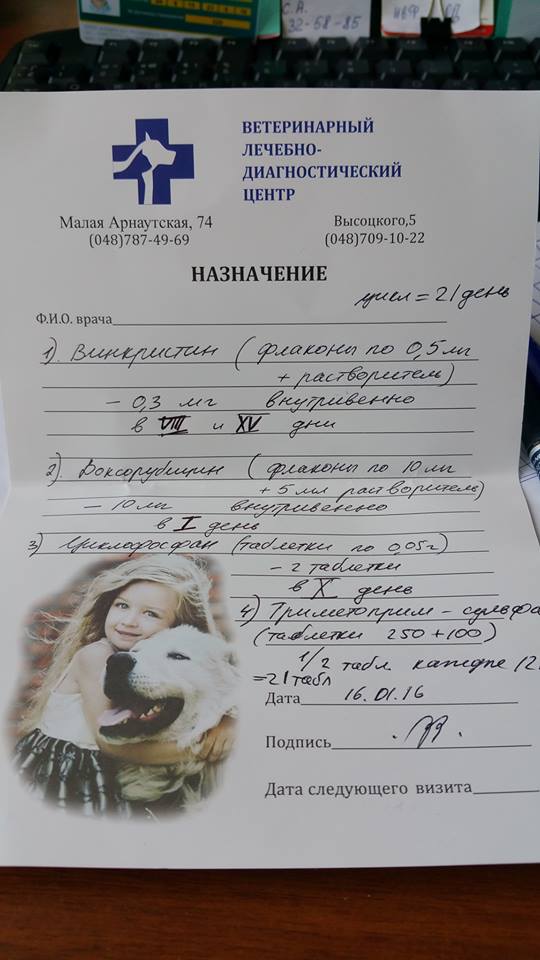 С.А.
32-58-85
ВЕТЕРИНАРНЫЙ
ЛЕЧЕБНО-
ДИАГНОСТИЧЕСКИЙ
ЦЕНТР
Малая Арнаутская, 74
(048)787-49-69
Высоцкого,5
(048)709-10-22
НАЗНАЧЕНИЕ
цикл = 21 день
Ф.И.О. врача
1). Винкристин (флаконы по 0,5 мг
+ растворитель)
- 0,3 мг внутривенно
в VIII и XV дни
2). Доксорубицин (флаконы по 10 мг
+ 5 мл растворитель)
- 10 мг внутривенно
в I день
3) Циклофосфан (таблетки по 0,05 г)
- 2 таблетки
в X день
4) Триметоприм - сульфа
(таблетки 250 + 100)
1/2 табл каждые 12
= 21 табл
Дата 16.01.16
Подпись
Дата следующего визита